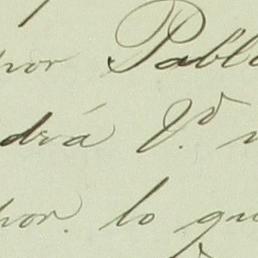 por Pablo
drá V.d
por. lo qu